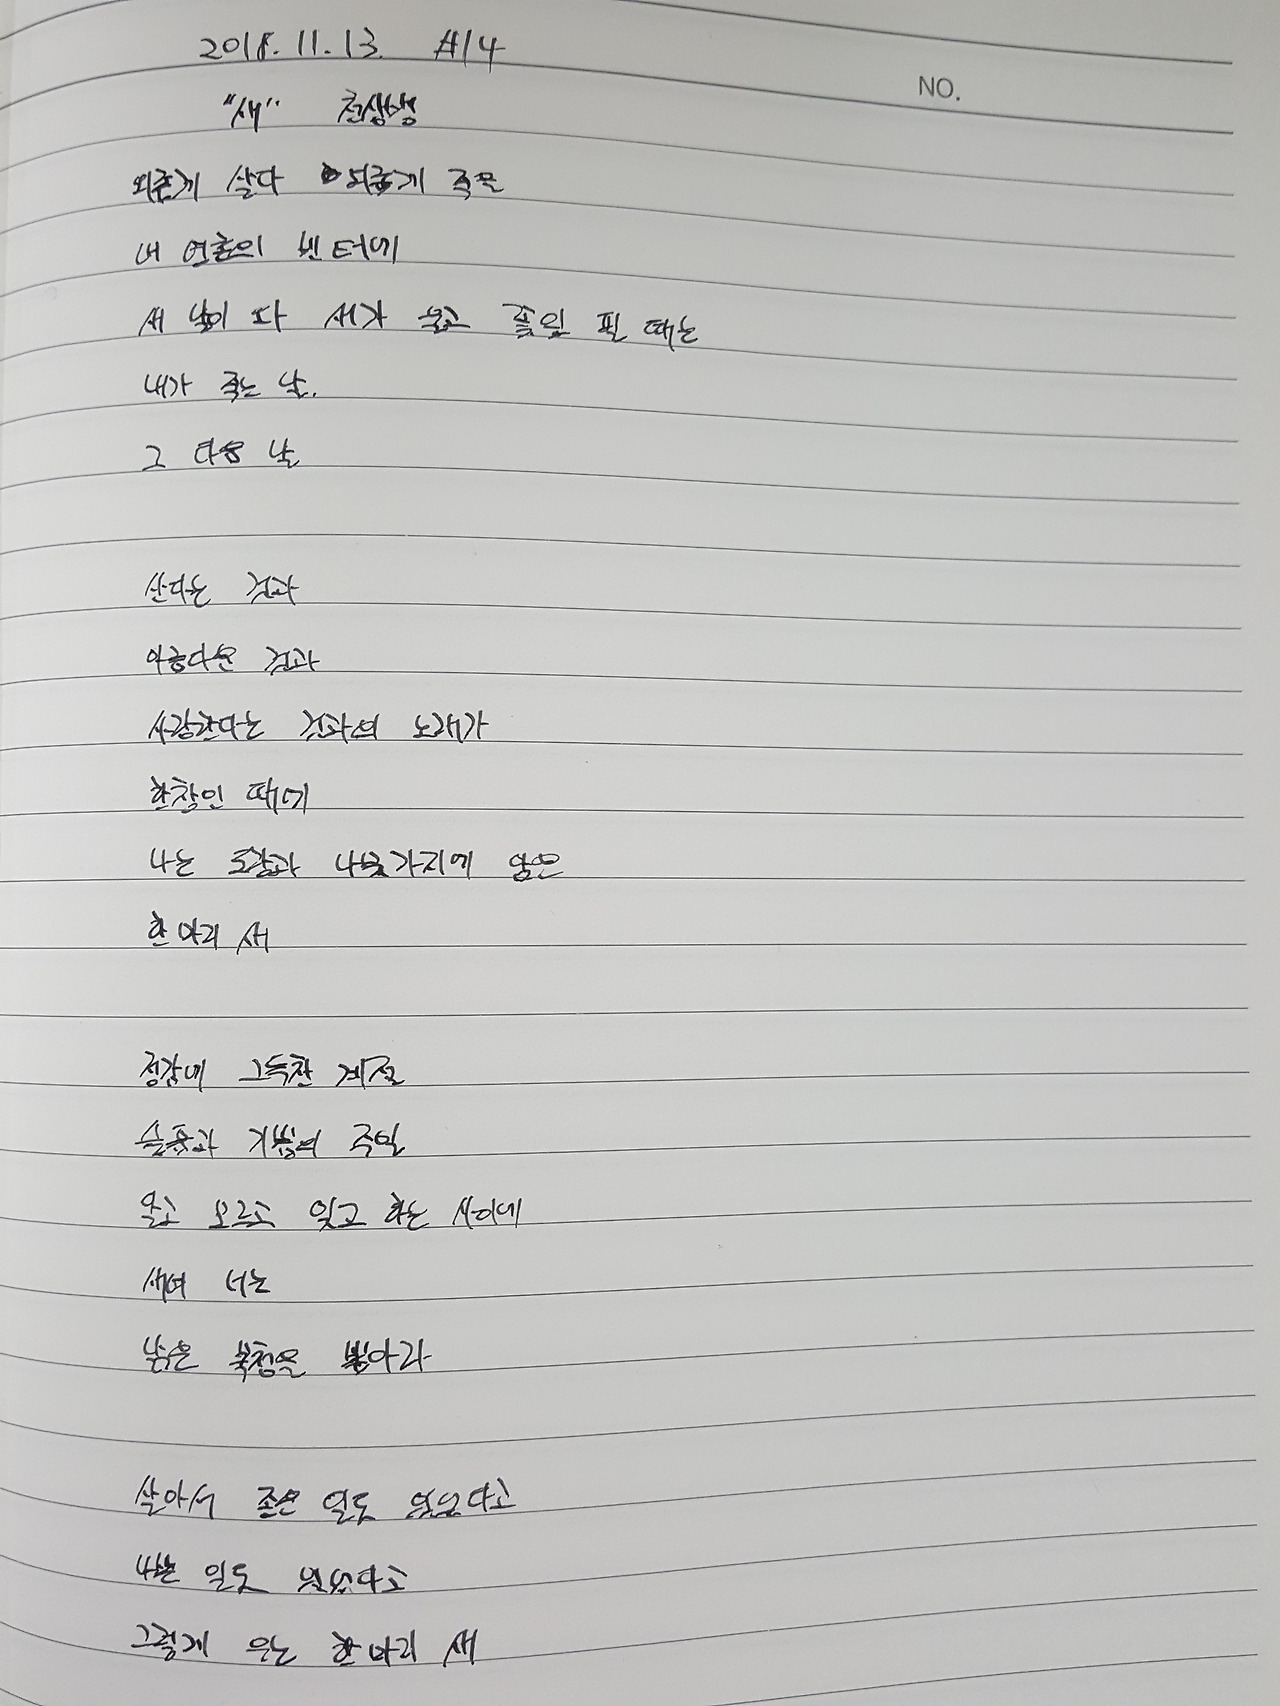 2018. 11. 13. #14
NO.
"새" 천상병
외롭게 살다 외롭게 죽을
내 영혼의 빈 터에
새 날이 와 새가 울고 꽃잎 필 때는
내가 죽는 날.
그 다음 날
산다는 것과
아름다운 것과
사랑한다는 것과의 노래가
한창인 때에
나는 도랑과 나뭇가지에 앉은
한 마리 새
정감에 그득찬 계절
슬픔과 기쁨의 주일
알고 모르고 잊고 하는 사이에
새여 너는
낡은 목청을 뽑아라
살아서 좋은 일도 있었다고
나쁜 일도 있었다고
그렇게 우는 한 마리 새